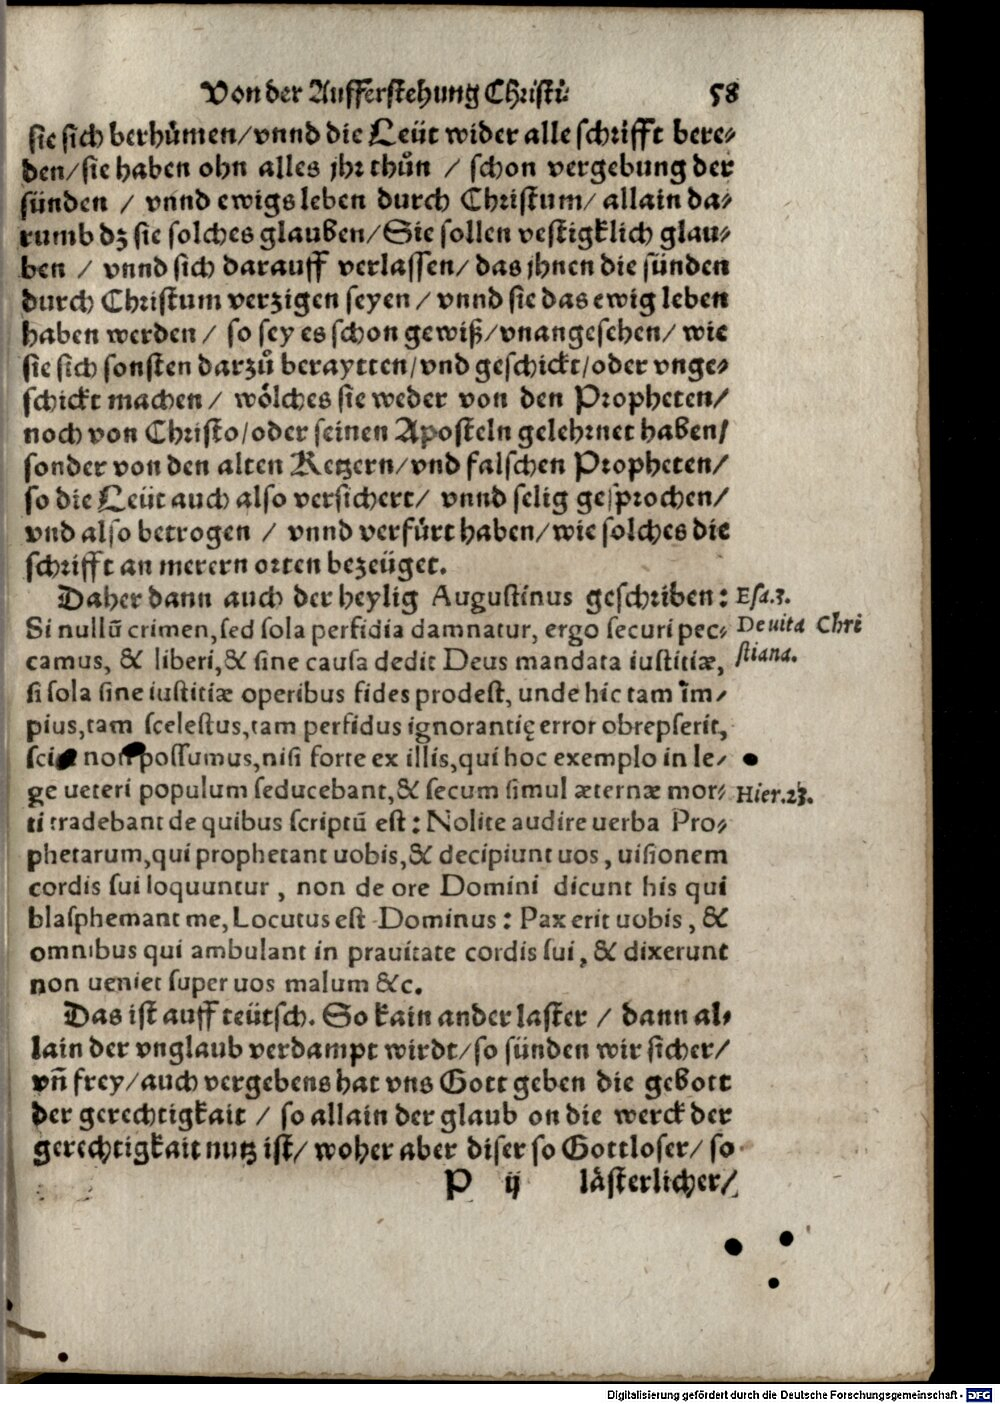 Von der Aufferstehung Christi. 58
sie sich berhůmen/ vnnd die Leüt wider alle schrifft bere⸗
den/ sie haben ohn alles jhr thůn / schon vergebung der
sünden / vnnd ewigs leben durch Christum/ allain da⸗
rumb dz sie solches glauben/ Sie sollen vestigklich glau⸗
ben / vnnd sich darauff verlassen/ das jhnen die sünden
durch Christum verzigen seyen / vnnd sie das ewig leben
haben werden / so sey es schon gewiß/ vnangesehen/ wie
sie sich sonsten darzů beraytten/ vnd geschickt/ oder vnge⸗
schickt machen / wölches sie weder von den Propheten/
noch von Christo/ oder seinen Aposteln gelehrnet haben/
sonder von den alten Ketzern/ vnd falschen Propheten/
so die Leüt auch also versichert/ vnnd selig gesprochen/
vnd also betrogen / vnnd verfürt haben/ wie solches die
schrifft an merern orten bezeüget.
Daher dann auch der heylig Augustinus geschriben: Esa.3.
Si nullū crimen, sed sola perfidia damnatur, ergo securi pec⸗ De vita Chri
camus, & liberi, & sine causa dedit Deus mandata iustitiæ, stiana.
si sola sine iustitiæ operibus fides prodest, unde hic tam im⸗
pius, tam scelestus, tam perfidus ignorantię error obrepserit,
scire non possumus, nisi forte ex illis, qui hoc exemplo in le⸗
ge ueteri populum seducebant, & secum simul æternæ mor⸗ Hier.23.
ti tradebant de quibus scriptū est: Nolite audire uerba Pro⸗
phetarum, qui prophetant uobis, & decipiunt uos, uisionem
cordis sui loquuntur, non de ore Domini dicunt his qui
blasphemant me, Locutus est Dominus: Pax erit uobis, &
omnibus qui ambulant in prauitate cordis sui, & dixerunt
non ueniet super uos malum &c.
Das ist auff teütsch. So kain ander laster / dann al⸗
lain der vnglaub verdampt wirdt/ so sünden wir sicher/
vn̄ frey/ auch vergebens hat vns Gott geben die gebott
der gerechtigkait / so allain der glaub on die werck der
gerechtigkait nutz ist/ woher aber diser so Gottloser/ so
P ij lästerlicher/
Digitalisierung gefördert durch die Deutsche Forschungsgemeinschaft - DFG